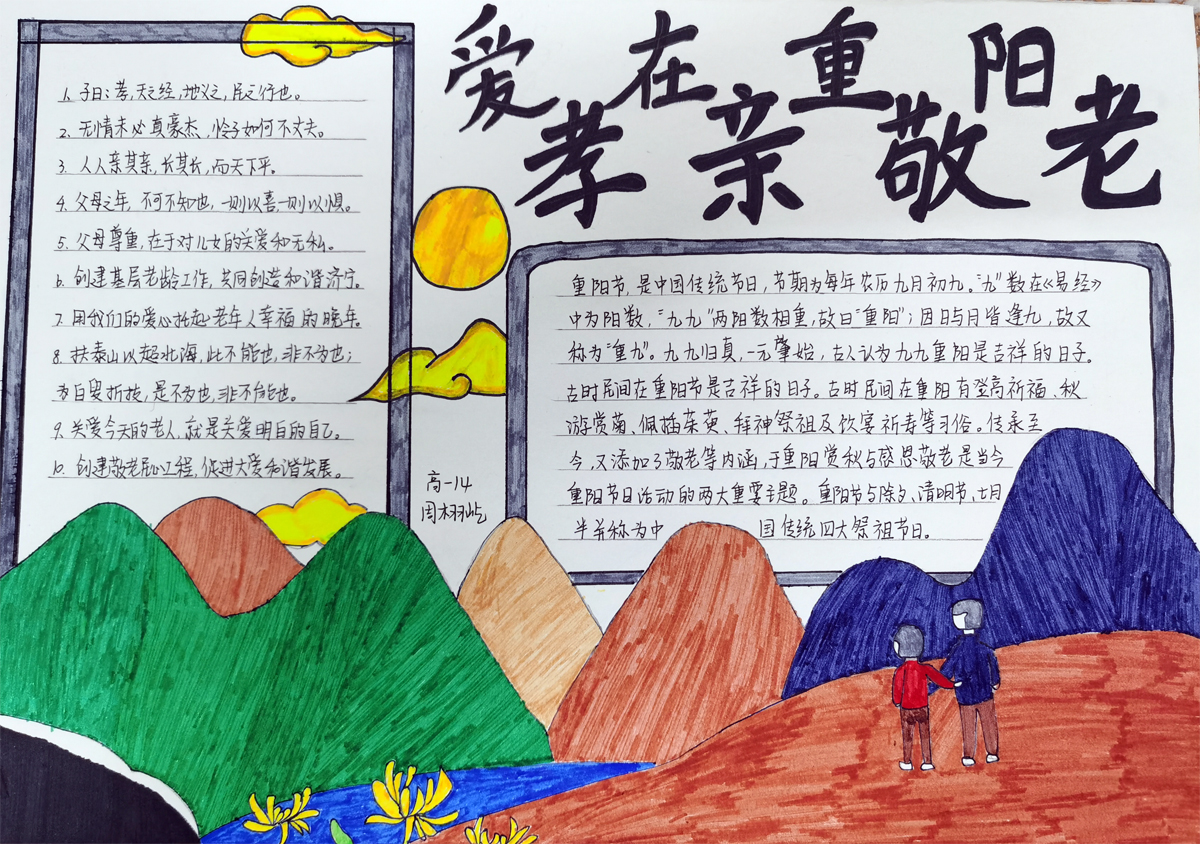 爱在重阳
孝亲敬老
1. 子曰：孝，天之经，地义之，民之行也。
2. 无情未必真豪杰，怜子如何不丈夫。
3. 人人亲其亲，长其长，而天下平。
4. 父母之年，不可不知也，一则以喜一则以惧。
5. 父母尊重，在于对儿女的关爱和无私。
6. 创建基层老龄工作，共同创造和谐济宁。
7. 用我们的爱心托起老年人幸福的晚年。
8. 扶泰山以超北海，此不能也，非不为也；
为白叟折技，是不为也，非不能也。
9. 关爱今天的老人，就是关爱明白的自己。
10. 创建敬老民心工程，促进大爱和谐发展。
高一14
周栩屹
重阳节，是中国传统节日，节期为每年农历九月初九。“九”数在《易经》
中为阳数，“九九”两阳数相重，故曰“重阳”；因日与月皆逢九，故又
称为“重九”。九九归真，一元肇始，古人认为九九重阳是吉祥的日子。
古时民间在重阳节是吉祥的日子。古时民间在重阳有登高祈福、秋
游赏菊、佩插茱萸、拜神祭祖及饮宴祈寿等习俗。传承至
今，又添加了敬老等内涵，于重阳赏秋与感恩敬老是当今
重阳节日活动的两大重要主题。重阳节与除夕、清明节、七月
半并称为中 国传统四大祭祖节日。